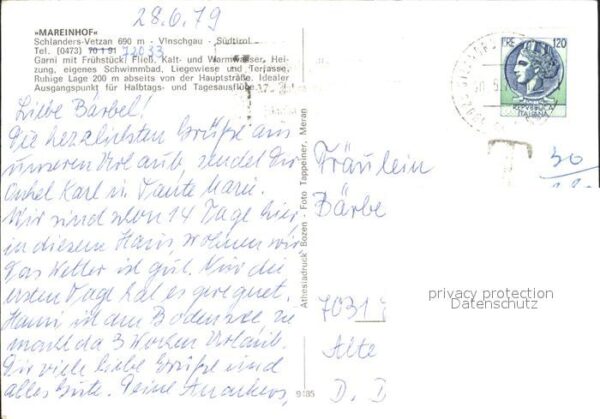 28.6.79
»MAREINHOF«
Schlanders-Vetzan 690 m - Vinschgau - Südtirol
Tel. (0473) 70191 72033
Garni mit Frühstück. Fließ. Kalt- und Warmwasser, Hei-
zung, eigenes Schwimmbad, Liegewiese und Terrasse.
Ruhige Lage 200 m abseits von der Hauptstraße. Idealer
Ausgangspunkt für Halbtags- und Tagesausflüge.
Liebe Bärbel!
Die herzlichsten Grüße aus
unserem Urlaub, sendet Dir
Onkel Karl u. Tante Marie.
Wir sind schon 14 Tage hier,
in diesem Haus wohnen wir
Das Wetter ist gut. Nur die
ersten Tage hat es geregnet.
Hanni ist am Bodensee sie
macht da 3 Wochen Urlaub.
Dir viele liebe Grüße und
alles Gute. Deine
Athesiadruck Bozen - Foto Tappeiner, Meran
9485
LIRE 120
REPUBBLICA
ITALIANA
T
30
Fräulein
Bärbe
7031
Alte
D. D
privacy protection
Datenschutz